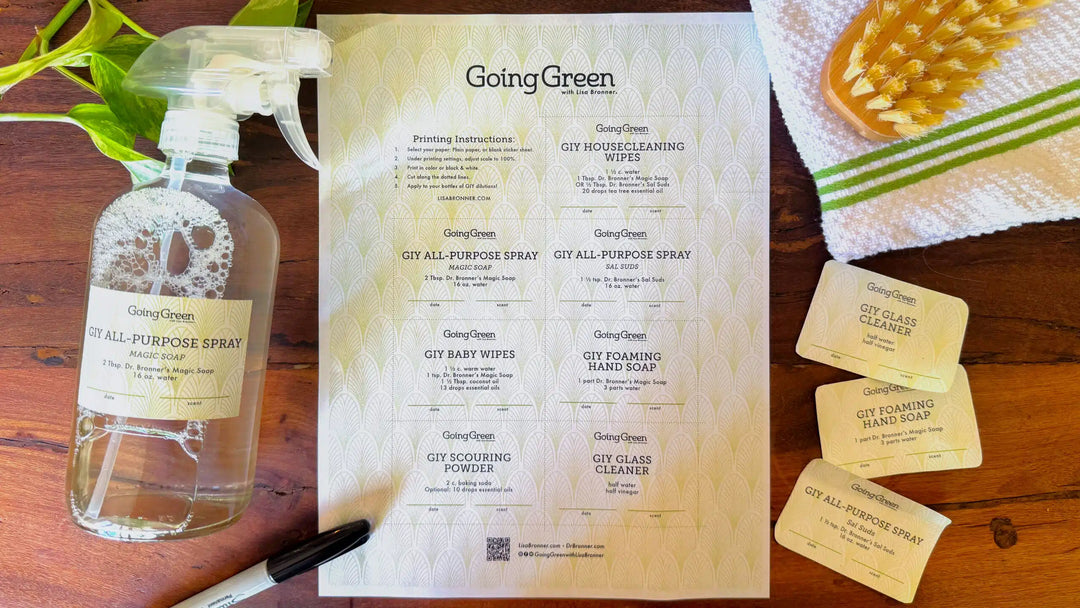 GoingGreen
with Lisa Bronner.
Printing Instructions:
1. Select your paper: Plain paper, or blank sticker sheet.
2. Under printing settings, adjust scale to 100%.
3. Print in color or black & white.
4. Cut along the dotted lines.
5. Apply to your bottles of GIY dilutions!
LISABRONNER.COM
GoingGreen
GIY HOUSECLEANING
WIPES
1 ½ c. water
1 Tbsp. Dr. Bronner's Magic Soap
OR ½ Tbsp. Dr. Bronner's Sal Suds
20 drops tea tree essential oil
date scent
GoingGreen
GIY ALL-PURPOSE SPRAY
MAGIC SOAP
2 Tbsp. Dr. Bronner's Magic Soap
16 oz. water
date scent
GoingGreen
GIY ALL-PURPOSE SPRAY
SAL SUDS
1 ½ tsp. Dr. Bronner's Sal Suds
16 oz. water
date scent
GoingGreen
GIY BABY WIPES
1 ½ c. warm water
1 tsp. Dr. Bronner's Magic Soap
1 ½ Tbsp. coconut oil
13 drops essential oils
date scent
GoingGreen
GIY FOAMING
HAND SOAP
1 part Dr. Bronner's Magic Soap
3 parts water
date scent
GoingGreen
GIY SCOURING
POWDER
2 c. baking soda
Optional: 10 drops essential oils
date scent
GoingGreen
GIY GLASS
CLEANER
half water
half vinegar
date scent
LisaBronner.com • DrBronner.com
@GoingGreenwithLisaBronner
GoingGreen
GIY ALL-PURPOSE SPRAY
MAGIC SOAP
2 Tbsp. Dr. Bronner's Magic Soap
16 oz. water
date scent
GoingGreen
GIY GLASS
CLEANER
half water
half vinegar
date scent
GoingGreen
GIY FOAMING
HAND SOAP
1 part Dr. Bronner's Magic Soap
3 parts water
date scent
GoingGreen
GIY ALL-PURPOSE SPRAY
Sal Suds
1 ½ tsp. Dr. Bronner's Sal Suds
16 oz. water
date scent